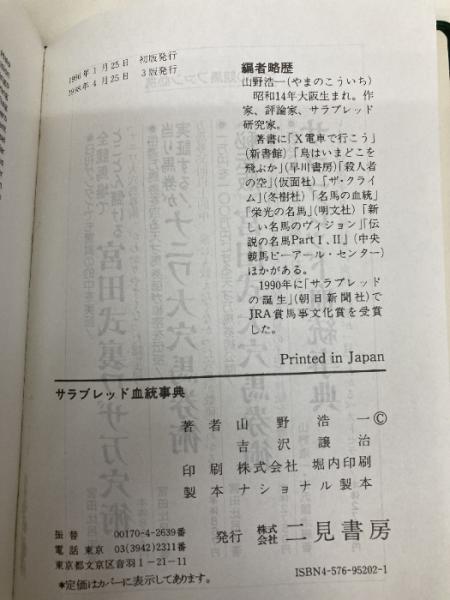 1996年1月25日 初版発行
1998年4月25日 3版発行
編者略歴
山野浩一(やまのこういち)
昭和14年大阪生まれ。作
家、評論家、サラブレッド
研究家。
著書に「X電車で行こう」
(新書館)「鳥はいまどこを
飛ぶか」(早川書房)「殺人者
の空」(仮面社)「ザ・クライ
ム」(冬樹社)「名馬の血統」
「栄光の名馬」(明文社)「新
しい名馬のヴィジョン」「伝
説の名馬PartⅠ.Ⅱ」(中央
競馬ピーアール・センター)
ほかがある。
1990年に「サラブレッド
の誕生」(朝日新聞社)で
JRA賞馬事文化賞を受賞
した。
Printed in Japan
サラブレッド血統事典
著者 山野浩一©
吉沢譲治
印刷 株式会社 堀内印刷
製本 ナショナル製本
発行 株式会社 二見書房
振替 00170-4-2639番
電話 東京 03(3942)2311番
東京都文京区音羽1-21-11
*定価はカバーに表示してあります。
ISBN4-576-95202-1